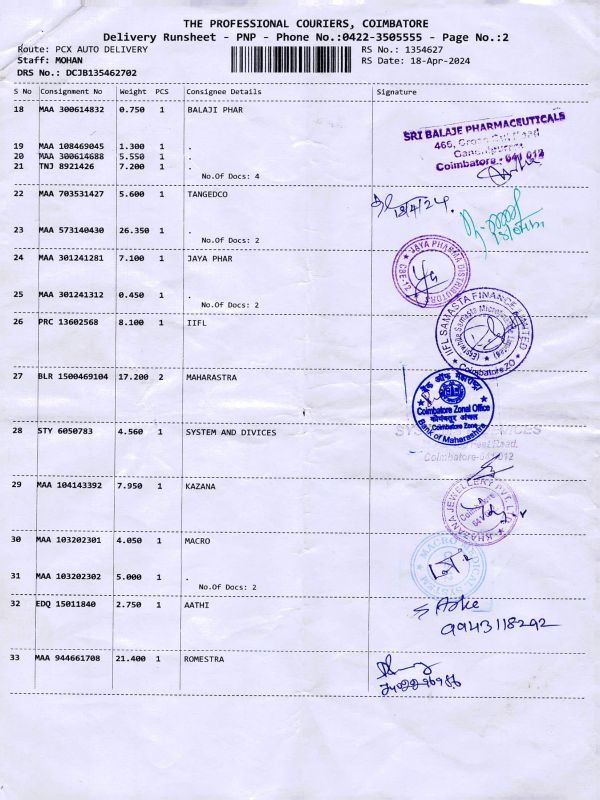 THE PROFESSIONAL COURIERS, COIMBATORE
Delivery Runsheet - PNP - Phone No.:0422-3505555 - Page No.:2
Route: PCX AUTO DELIVERY RS No.: 1354627
Staff: MOHAN RS Date: 18-Apr-2024
DRS No.: DCJB135462702
S No Consignment No Weight PCS Consignee Details Signature
18 MAA 300614832 0.750 1 BALAJI PHAR
SRI BALAJE PHARMACEUTICALS
466, Cross Cut Road
Gandhipuram
Coimbatore - 641 012
19 MAA 108469045 1.300 1 .
20 MAA 300614688 5.550 1 .
21 TNJ 8921426 7.200 1 .
No.Of Docs: 4
22 MAA 703531427 5.600 1 TANGEDCO
18/4/24
23 MAA 573140430 26.350 1 .
No.Of Docs: 2
24 MAA 301241281 7.100 1 JAYA PHAR
JAYA PHARMA DISTRIBUTORS
CBE-12
25 MAA 301241312 0.450 1 .
No.Of Docs: 2
26 PRC 13602568 8.100 1 IIFL
IIFL SAMASTA FINANCE LIMITED
Coimbatore 20
27 BLR 1500469104 17.200 2 MAHARASTRA
बैंक ऑफ महाराष्ट्र
Coimbatore Zonal Office
कोयंबतूर अंचल
Coimbatore Zone
Bank of Maharashtra
28 STY 6050783 4.560 1 SYSTEM AND DIVICES
Coimbatore-641 012
29 MAA 104143392 7.950 1 KAZANA
KHAZANA JEWELLERY PVT. LTD.
Coimbatore
30 MAA 103202301 4.050 1 MACRO
MACRO
31 MAA 103202302 5.000 1 .
No.Of Docs: 2
32 EDQ 15011840 2.750 1 AATHI
9943118292
33 MAA 944661708 21.400 1 ROMESTRA